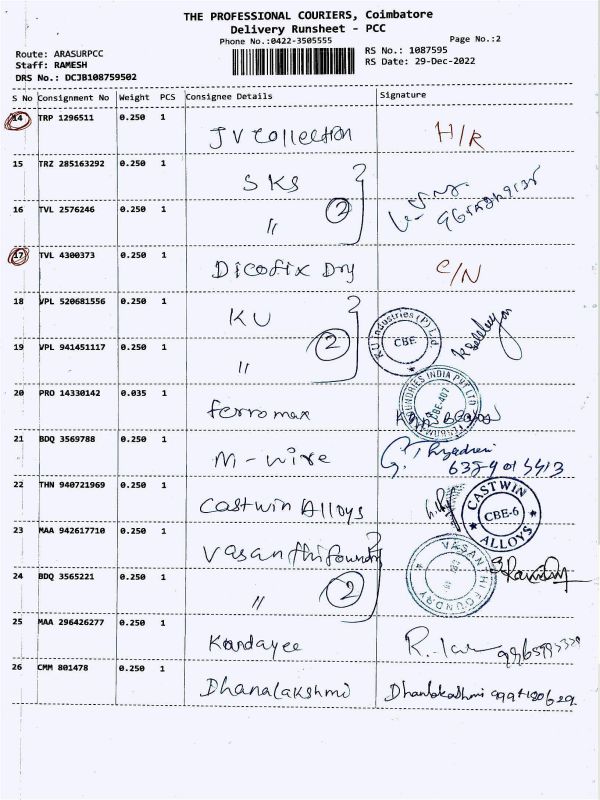 THE PROFESSIONAL COURIERS, Coimbatore
Delivery Runsheet - PCC
Phone No.:0422-3505555
Page No.:2
Route: ARASURPCC
Staff: RAMESH
DRS No.: DCJB108759502
RS No.: 1087595
RS Date: 29-Dec-2022
S No Consignment No Weight PCS Consignee Details Signature
14 TRP 1296511 0.250 1 JV Collection H/R
15 TRZ 285163292 0.250 1 SKS
16 TVL 2576246 0.250 1 " 2
17 TVL 4300373 0.250 1 Dicofix Dry C/N
18 VPL 520681556 0.250 1 KU
KU Industries (P) Ltd
CBE
19 VPL 941451117 0.250 1 " 2
20 PRO 14330142 0.035 1 Ferromax
INDIA PVT LTD
CBE-407
21 BDQ 3569788 0.250 1 M-wire
22 THN 940721969 0.250 1 Castwin Alloys
CASTWIN
CBE-6
ALLOYS
23 MAA 942617710 0.250 1 Vasanthi foundry
VASANTHI FOUNDRY
24 BDQ 3565221 0.250 1 " 2
25 MAA 296426277 0.250 1 Kandayee R.
26 CMM 801478 0.250 1 Dhanalakshmi